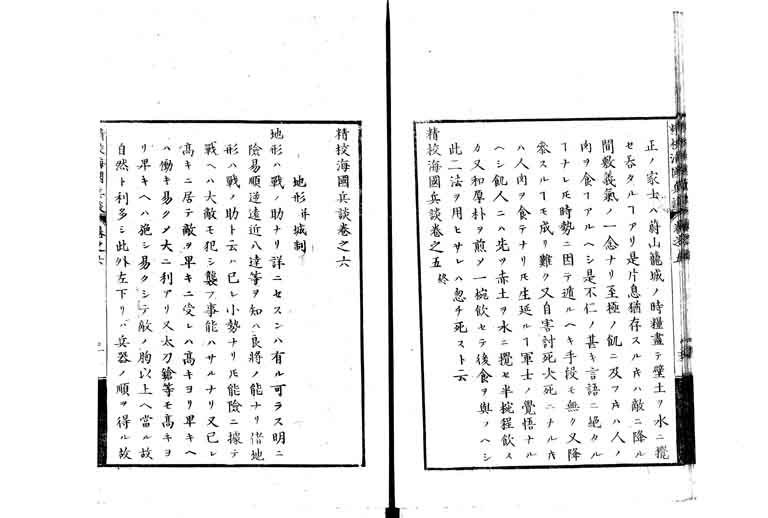 正ノ家士ハ蔚山籠城ノ時糧盡テ壁土ヲ水ニ攪
セ呑タルヿアリ是片息猶存スル𪜈ハ敵ニ降ル
間敷義氣ノ一念ナリ至極ノ飢ニ及フ𪜈ハ人ノ
肉ヲ食フヿアルヘシ是不仁ノ甚キ言語ニ絶タル
ヿナレ𪜈時勢ニ因テ遁ルヘキ手段モ無ク又降
参スルヿモ成リ難ク又自害討死火死ニナル𪜈
ハ人肉ヲ食テナリ𪜈生延ルヿ軍士ノ覺悟ナル
ヘシ飢人ニハ先ツ赤土ヲ水ニ攪セ半掟程飲ス
カ又和厚朴ヲ煎メ一椀飲セテ後食ヲ與フヘシ
此二法ヲ用ヒサレハ忽チ死スト云
精校海國兵談卷之五 終
精校海國兵談卷之六
地形幷城制
地形ハ戰ノ助ナリ詳ニセスンハ有ル可ラス明ニ
險易順逆遠近八達等ヲ知ハ良將ノ能ナリ借地
形ハ戰ノ助ト云ハ已レ小勢ナリ𪜈能險ニ據テ
戰ヘハ大敵モ犯シ襲フ事能ハサルナリ又已レ
高キニ居テ敵ヲ卑キニ受レハ高キヨリ卑キヘ
ハ働キ易クメ大ニ利アリ又太刀鎗等モ高キヨ
リ卑キヘハ施シ易クシテ敵ノ胸以上ヘ當ル故
自然ト利多シ此外左下リハ兵器ノ順ヲ得ル故